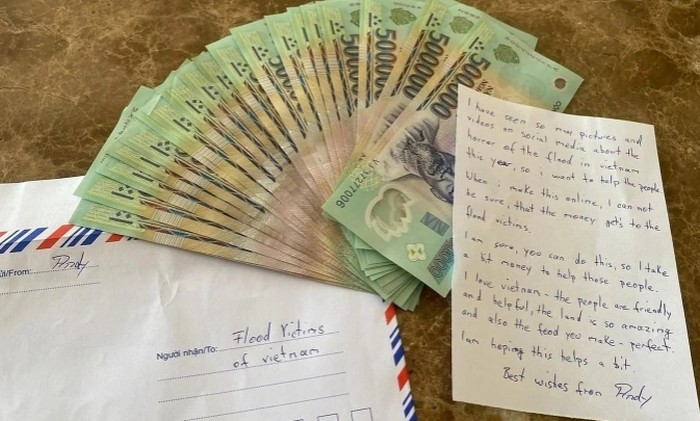 500000
500000
500000
500000
VN
77277006
I have seen so many pictures and
videos on social media about the
horror of the flood in vietnam
this year, so i want to help the people.
When i make this online, I can not
be sure, that the money get's to the
flood victims.
I am sure, you can do this, so I take
a bit money to help those people.
I love vietnam - the people are friendly
and helpful, the land is so amazing
and also the food you make - perfect.
I am hoping this helps a bit.
Best wishes from Andy
/From: Andy
Người nhận/To: Flood Victims
of vietnam